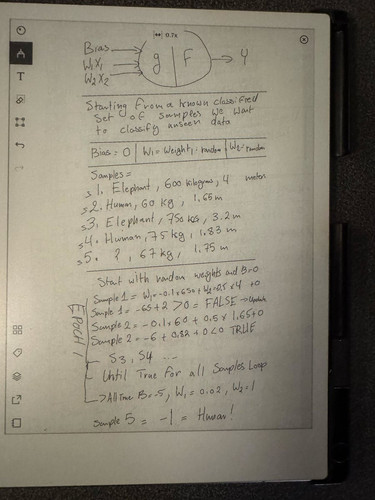 0.76
Bias
W1X1
W2X2
g | F
Y
Starting from a known classified
Set of samples we want
to classify unseen data
Bias = 0 | W1 = Weight1 : random | W2 = random
Samples =
s1. Elephant, 600 kilograms, 4 meters
s2. Human, 60 kg, 1.65m
s3. Elephant, 750 kgs, 3.2m
s4. Human, 75 kg, 1.83 m
s5. ?, 67 kg, 1.75 m
EPOCH 1
Start with random weights and B=0
Sample 1 = W1 = -0.1 x 650 + W2 = 0.5 x 4 +0
Sample 1 = -65+2 > 0 = FALSE → Update
Sample 2 = -0.1 x 60 + 0.5 x 1.65+0
Sample 2 = -6 + 0.82 + 0 < 0 TRUE
S3, S4 ...
Until True for all Samples Loop
→ All True B=-5, W1 = 0.02, W2 = 1
Sample 5 = -1 = Human!
T